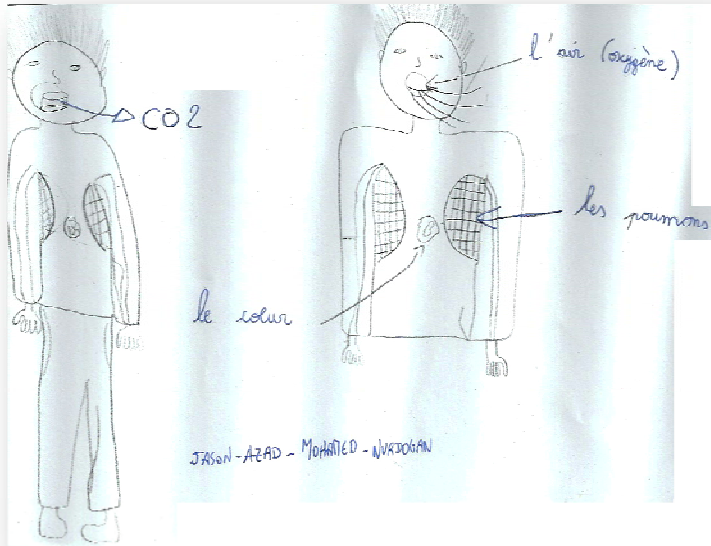 l'air (oxygène)
CO2
les poumons
le coeur
JASON - AZAD - MOHAMED - NURDOGAN